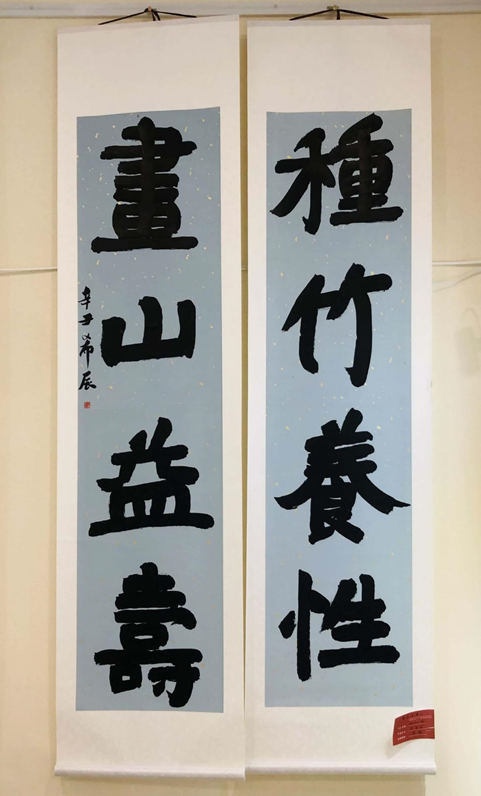 種竹養性
畫山益壽
辛丑希辰